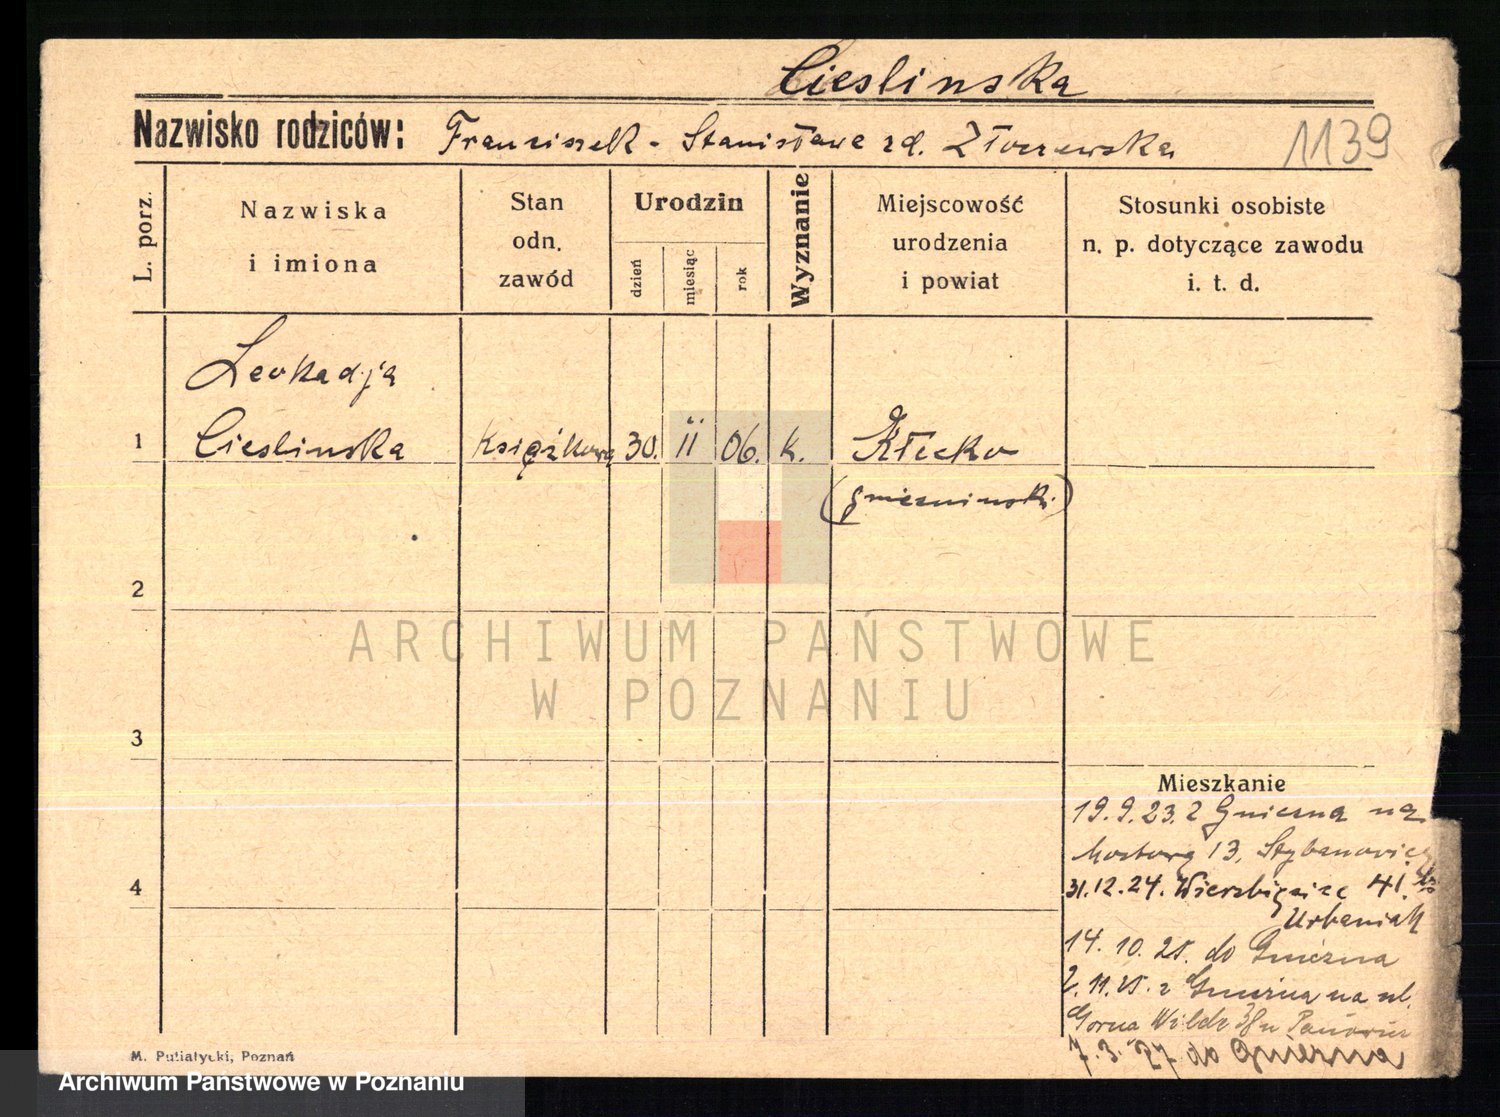 Cieslinska
Nazwisko rodziców: Franciszek - Stanisława zd. Złoczewska
1139
L. porz.
Nazwiska
i imiona
Stan
odn.
zawód
Urodzin
dzień
miesiąc
rok
Wyznanie
Miejscowość
urodzenia
i powiat
Stosunki osobiste
n. p. dotyczące zawodu
i. t. d.
Leokadja
1 Cieslinska Książkowa 30. II 06. k. Kłecko
(gnieznieński)
2
ARCHIWUM PAŃSTWOWE
W POZNANIU
3
Mieszkanie
19.9.23. z Gniezna na
Mostową 13,
4
31.12.24. Wierzbięcice 41.
Urbaniak
14. 10. 25. do Gniezna
2. 11. 25. z Gniezna na ul.
Gorna Wilda
7. 3. 27 do Gniezna
M. Putiatycki, Poznań
Archiwum Państwowe w Poznaniu